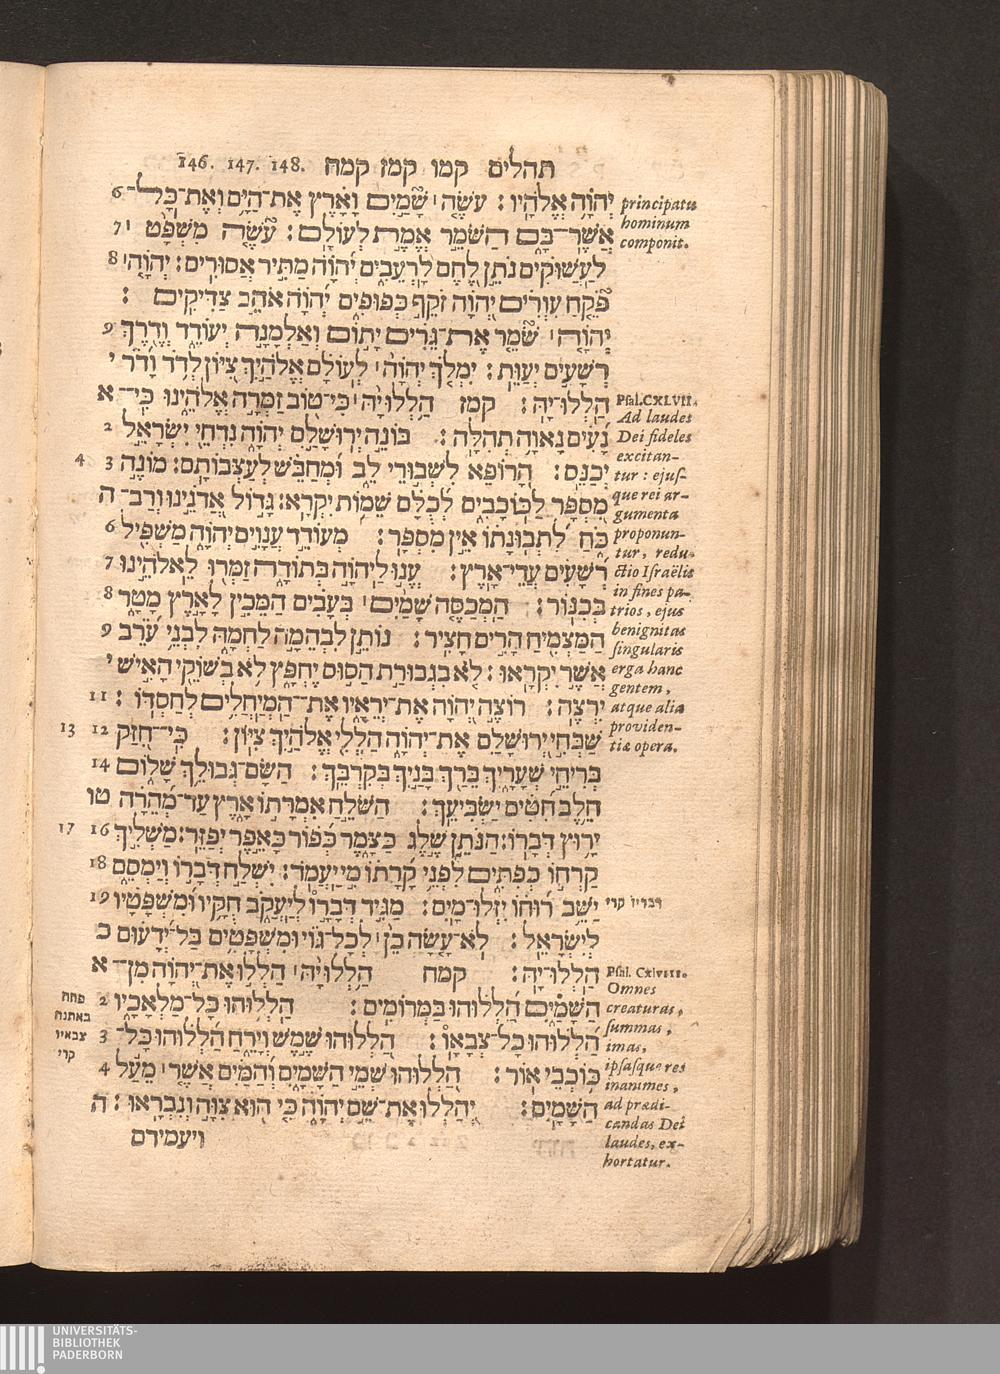 תהלים קמו קמז קמח 146. 147. 148.
יְהֹוָ֥ה אֱלֹהָֽיו׃ עֹשֶׂ֤ה ׀ שָׁ֘מַ֤יִם וָאָ֗רֶץ אֶת־הַיָּ֥ם וְאֶת־כָּל־ 6
אֲשֶׁר־בָּ֑ם הַשֹּׁמֵ֖ר אֱמֶ֣ת לְעוֹלָֽם׃ עֹשֶׂ֤ה מִשְׁפָּ֨ט ׀ 7
לַעֲשׁוּקִ֗ים נֹתֵ֣ן לֶ֭חֶם לָרְעֵבִ֑ים יְ֝הֹוָ֗ה מַתִּ֥יר אֲסוּרִֽים׃ יְהֹוָ֤ה ׀ 8
פֹּ֘קֵ֤חַ עִוְרִ֗ים יְ֭הֹוָה זֹקֵ֣ף כְּפוּפִ֑ים יְ֝הֹוָ֗ה אֹהֵ֥ב צַדִּיקִֽים׃
יְהֹוָ֤ה ׀ שֹׁ֘מֵ֤ר אֶת־גֵּרִ֗ים יָת֣וֹם וְאַלְמָנָ֣ה יְעוֹדֵ֑ד וְדֶ֖רֶךְ 9
רְשָׁעִ֣ים יְעַוֵּֽת׃ יִמְלֹ֤ךְ יְהֹוָ֨ה ׀ לְעוֹלָ֗ם אֱלֹהַ֣יִךְ צִ֭יּוֹן לְדֹ֥ר וָדֹ֗ר י
הַֽלְלוּ־יָֽהּ׃ קמז הַ֥לְלוּיָ֨הּ ׀ כִּי־ט֭וֹב זַמְּרָ֣ה אֱלֹהֵ֑ינוּ כִּֽי־ א
נָ֝עִ֗ים נָאוָ֥ה תְהִלָּֽה׃ בּוֹנֵ֣ה יְרוּשָׁלַ֣‍ִם יְהֹוָ֑ה נִדְחֵ֖י יִשְׂרָאֵ֣ל 2
יְכַנֵּֽס׃ הָ֭רוֹפֵא לִשְׁב֣וּרֵי לֵ֑ב וּ֝מְחַבֵּ֗שׁ לְעַצְּבוֹתָֽם׃ מוֹנֶ֣ה 3 4
מִ֭סְפָּר לַכּוֹכָבִ֑ים לְ֝כֻלָּ֗ם שֵׁמ֥וֹת יִקְרָֽא׃ גָּד֣וֹל אֲדֹנֵ֣ינוּ וְרַב־ ה
כֹּ֑חַ לִ֝תְבוּנָת֗וֹ אֵ֣ין מִסְפָּֽר׃ מְעוֹדֵ֣ד עֲנָוִ֣ים יְהֹוָ֑ה מַשְׁפִּ֖יל 6
רְשָׁעִ֣ים עֲדֵי־אָֽרֶץ׃ עֱנ֣וּ לַיהֹוָ֣ה בְּתוֹדָ֑ה זַמְּר֖וּ לֵאלֹהֵ֣ינוּ 7
בְכִנּֽוֹר׃ הַֽמְכַסֶּ֬ה שָׁמַ֨יִם ׀ בְּעָבִ֗ים הַמֵּכִ֣ין לָאָ֣רֶץ מָטָ֑ר 8
הַמַּצְמִ֖יחַ הָרִ֣ים חָצִֽיר׃ נוֹתֵ֣ן לִבְהֵמָ֣ה לַחְמָ֑הּ לִבְנֵ֥י עֹ֝רֵ֗ב 9
אֲשֶׁ֣ר יִקְרָֽאוּ׃ לֹ֤א בִגְבוּרַ֣ת הַסּ֣וּס יֶחְפָּ֑ץ לֹֽא בְשׁוֹקֵ֖י הָאִ֣ישׁ י
יִרְצֶֽה׃ רוֹצֶ֣ה יְ֭הֹוָה אֶת־יְרֵאָ֑יו אֶת־הַֽמְיַחֲלִ֥ים לְחַסְדּֽוֹ׃ 11
שַׁבְּחִ֣י יְ֭רוּשָׁלַ‍ִם אֶת־יְהֹוָ֑ה הַֽלְלִ֖י אֱלֹהַ֣יִךְ צִיּֽוֹן׃ כִּֽי־חִ֭זַּק 12 13
בְּרִיחֵ֣י שְׁעָרָ֑יִךְ בֵּרַ֖ךְ בָּנַ֣יִךְ בְּקִרְבֵּֽךְ׃ הַשָּׂם־גְּבוּלֵ֥ךְ שָׁל֑וֹם 14
חֵ֥לֶב חִ֝טִּ֗ים יַשְׂבִּיעֵֽךְ׃ הַשֹּׁלֵ֣חַ אִמְרָת֣וֹ אָ֑רֶץ עַד־מְ֝הֵרָ֗ה טו
יָר֥וּץ דְּבָרֽוֹ׃ הַנֹּתֵ֣ן שֶׁ֣לֶג כַּצָּ֑מֶר כְּ֝פ֗וֹר כָּאֵ֥פֶר יְפַזֵּֽר׃ מַשְׁלִ֣יךְ 16 17
קַֽרְח֣וֹ כְפִתִּ֑ים לִפְנֵ֥י קָ֝רָת֗וֹ מִ֣י יַעֲמֹֽד׃ יִשְׁלַ֣ח דְּבָר֣וֹ וְיַמְסֵ֑ם 18
יַשֵּׁ֥ב ר֝וּח֗וֹ יִזְּלוּ־מָֽיִם׃ מַגִּ֣יד דְּבָרָ֣ו לְיַעֲקֹ֑ב חֻקָּ֥יו וּ֝מִשְׁפָּטָ֗יו 19
לְיִשְׂרָאֵֽל׃ לֹ֘א־עָ֤שָׂה כֵ֨ן ׀ לְכָל־גּ֗וֹי וּמִשְׁפָּטִ֥ים בַּל־יְדָע֗וּם כ
הַֽלְלוּ־יָֽהּ׃ קמח הַ֥לְלוּיָ֨הּ ׀ הַֽלְל֣וּ אֶת־יְ֭הֹוָה מִן־ א
הַשָּׁמַ֑יִם הַֽ֝לְל֗וּהוּ בַּמְּרוֹמִֽים׃ הַֽלְל֥וּהוּ כָל־מַלְאָכָ֑יו 2
הַֽ֝לְל֗וּהוּ כָּל־צְבָאָֽו׃ הַֽ֭לְלוּהוּ שֶׁ֣מֶשׁ וְיָרֵ֑חַ הַ֝לְל֗וּהוּ כָּל־ 3
כּ֥וֹכְבֵי אֽוֹר׃ הַֽ֭לְלוּהוּ שְׁמֵ֣י הַשָּׁמָ֑יִם וְ֝הַמַּ֗יִם אֲשֶׁ֤ר ׀ מֵעַ֬ל 4
הַשָּׁמָֽיִם׃ יְֽ֭הַלְלוּ אֶת־שֵׁ֣ם יְהֹוָ֑ה כִּ֤י ה֖וּא צִוָּ֣ה וְנִבְרָֽאוּ׃ ה
ויעמידם
principatu
hominum
componit.
Psal. CXLVII.
Ad laudes
Dei fideles
excitan-
tur : ejus-
que rei ar-
gumenta
proponun-
tur, redu-
ctio Israëlis
in fines pa-
trios, ejus
benignitas
singularis
erga hanc
gentem,
atque alia
providen-
tiæ opera.
דבריו קרי
Psal. CXlVIII.
Omnes
creaturas,
summas,
imas,
ipsasque res
inanimes,
ad prædi-
candas Dei
laudes, ex-
hortatur.
פתח
באתנח
צבאיו
קרי
UNIVERSITÄTS-
BIBLIOTHEK
PADERBORN